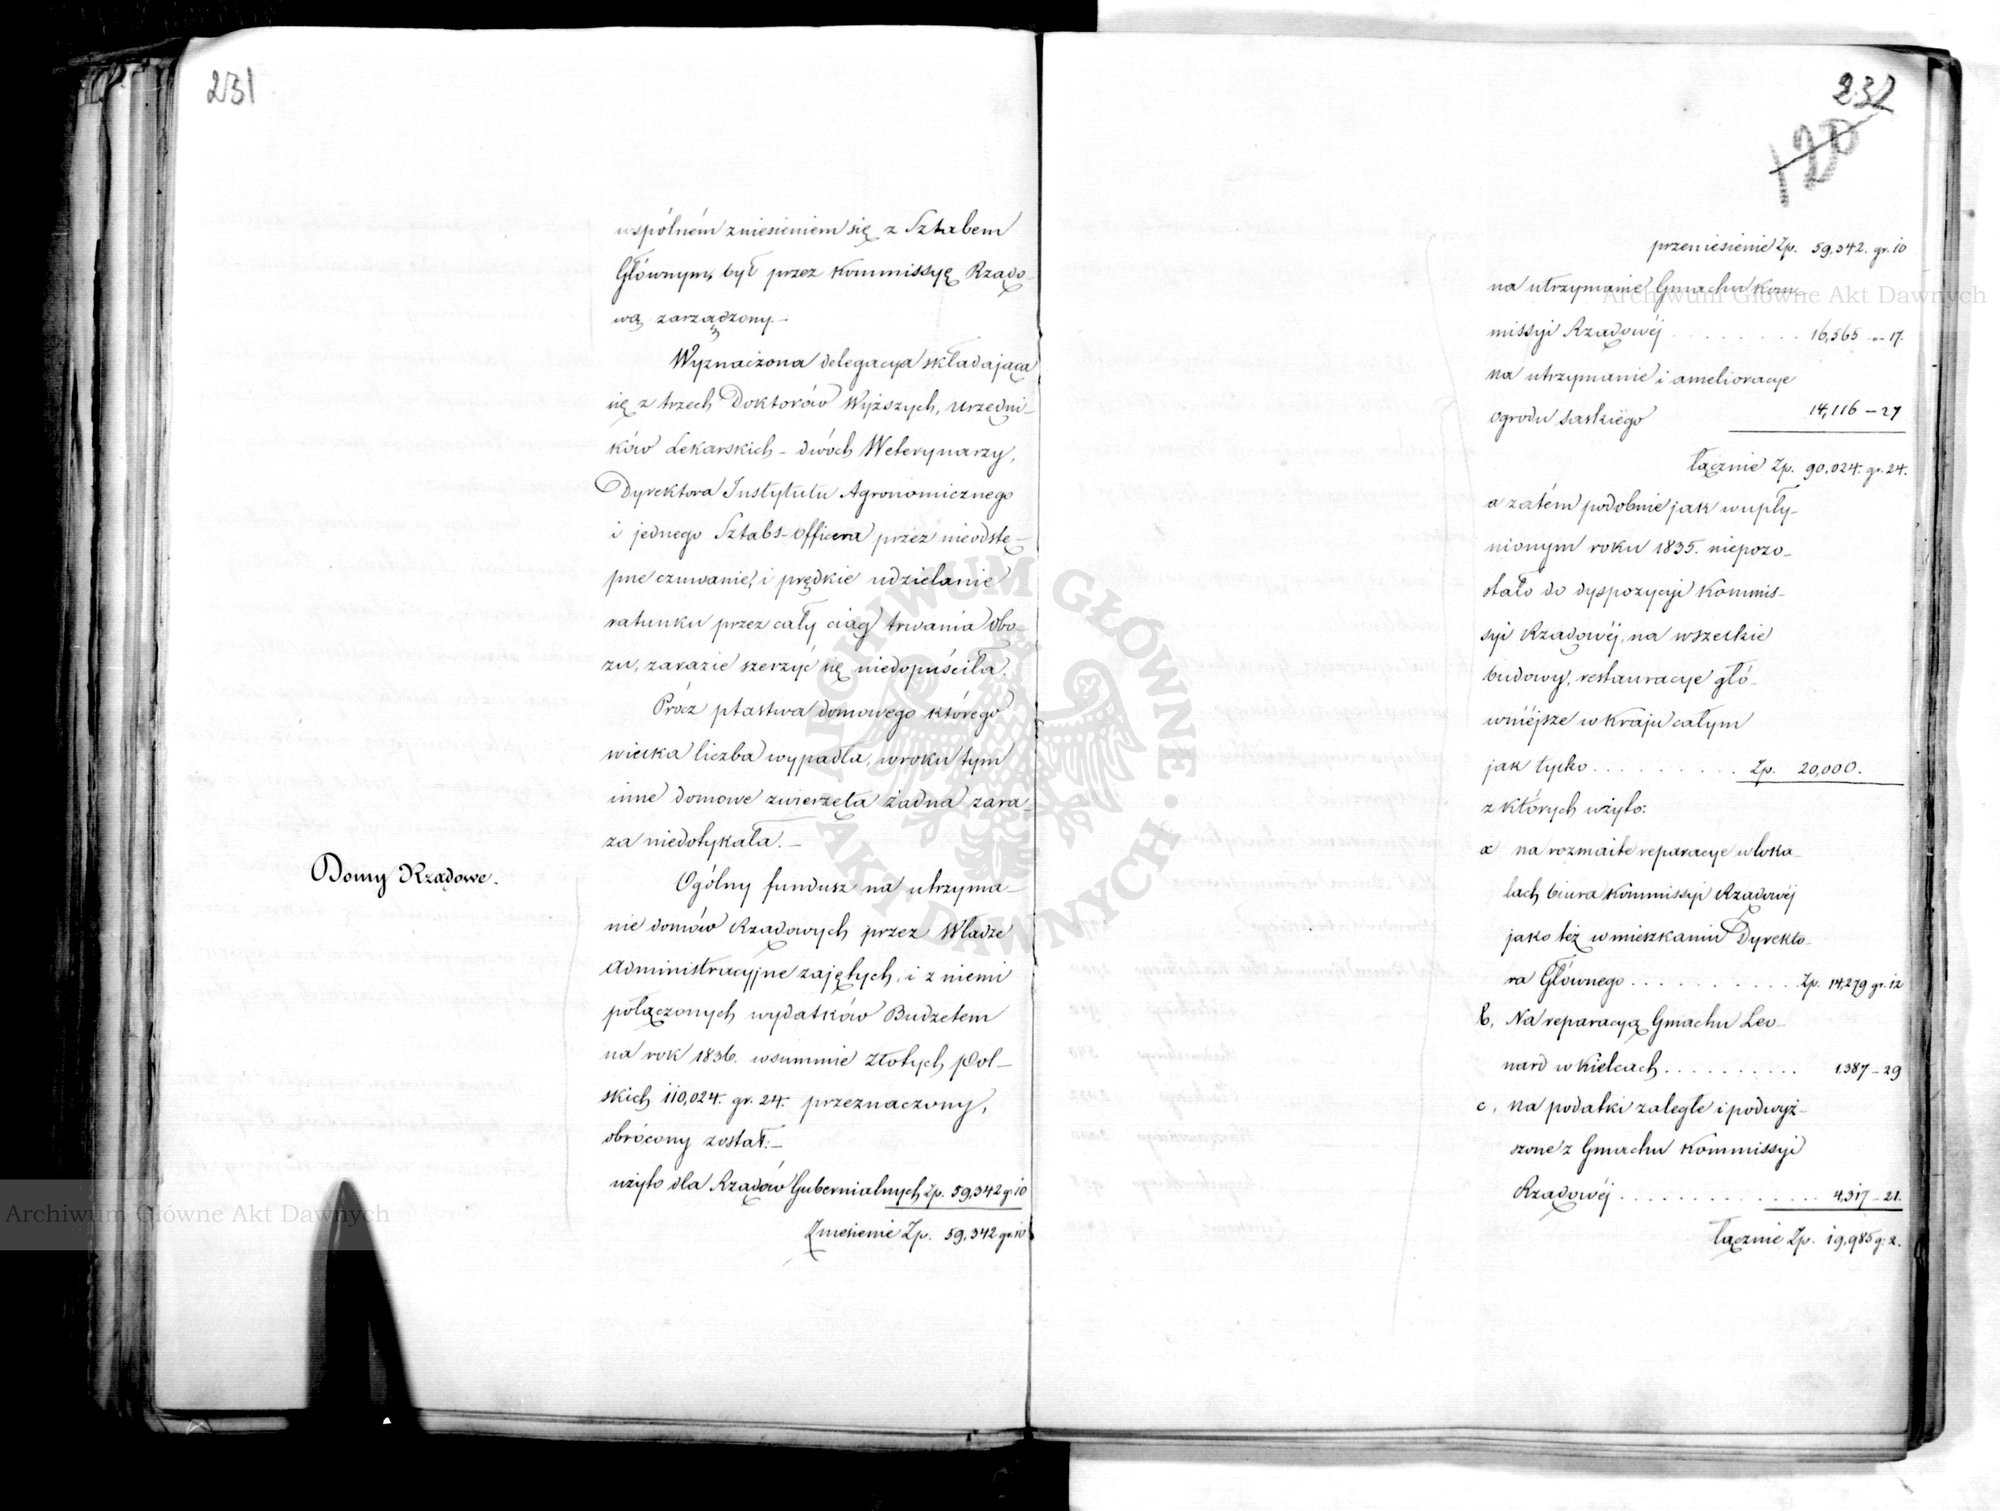 231
wspólném zniesieniem się z Sztabem
Głównym, był przez Kommissyę Rządo-
wą zarządzony.-
Wyznaczona delegacya składająca
się z trzech Doktorów Wyższych, Urzędni-
ków Lekarskich - dwóch Weterynarzy,
Dyrektora Instytutu Agronomicznego
i jednego Sztabs-Officera przez nieodstę-
pne czuwanie, i prędkie udzielanie
ratunku przez cały ciąg trwania obo-
zu, zarazie szerzyć się niedopuściła.
Prócz ptastwa domowego którego
wielka liczba wypadła, w roku tym
inne domowe zwierzęta żadna zara-
za niedotykała.-
Domy Rządowe.
Ogólny fundusz na utrzyma-
nie domów Rządowych przez Władze
Administracyjne zajętych, i z niemi
połączonych wydatków Budżetem
na rok 1836. w summie Złotych Pol-
skich 110,024. gr. 24. przeznaczony,
obrócony został:-
użyto dla Rządów Gubernialnych Zp. 59,342 gr. 10
Zniesienie Zp. 59,342 gr. 10
232
120
przeniesienie Zp. 59,342. gr. 10
na utrzymanie Gmachu Kom-
missyi Rządowéj . . . . . . . . 16,565 - 17.
na utrzymanie i amelioracye
Ogrodu Saskiégo 14,116 - 27
Łącznie Zp. 90,024. gr. 24.
a zatém podobnie jak w upły-
nionym roku 1835. niepozo-
stało do dyspozycyi Kommis-
syi Rządowéj, na wszelkie
budowy, restauracye głó-
wniéjsze w Kraju całym
jak tylko . . . . . . . . . Zp. 20,000.
z których użyto:
a na rozmaite reparacye w loka-
lach biura Kommissyi Rządowéj
jako też w mieszkaniu Dyrekto-
ra Głównego . . . . . . . . . . Zp. 14,279 gr. 12
b, Na reparacyą Gmachu Leo-
nard w Kielcach . . . . . . . . . . 1,387 - 29
c, na podatki zaległe i podwyż-
szone z Gmachu Kommissyi
Rządowéj . . . . . . . . . . . . . 4,317 - 21.
Łącznie Zp. 19,985 g: 2.
Archiwum Główne Akt Dawnych
Archiwum Główne Akt Dawnych
ARCHIWUM GŁÓWNE • AKT DAWNYCH •